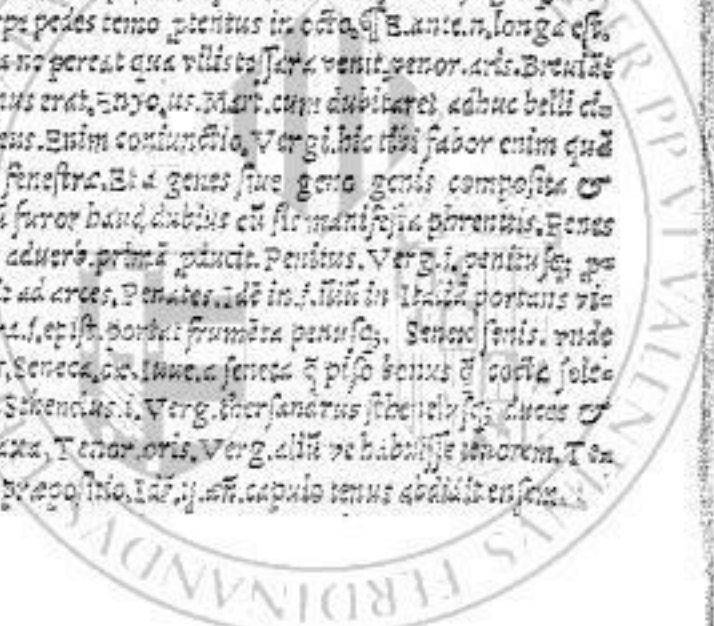 pedes temo ptentus in octo.¶E.ante.n.longa est.
no pereat qua vilis tessara venit.venor.aris.Breuiat̃
erat.Enyo,us.Mart.cum dubitaret adhuc belli ci-
Enim coniunctio.Vergi.hic tibi fabor enim quã
fenestra.Et a genes siue geno genis composita &
furor haud dubius cũ sit manifesta phrenitis.Penes
aduerb.primã .Penitus.Verg.i.penitusq;
ad arces.Penates.Idẽ in.i. in Italiã portans
epist.portat frumẽta penusq;. Senex senis. vnde
Seneca,cæ.Iuue.a seneca q̃ piso bonus q̃ cotta
Sthenelus.i.Verg.thersandrus sthenelusq; duces &
Tenor.oris.Verg.aliũ habuisse tenorem.Ten
præpositio.Idẽ.ij.æñ.capulo tenus abdidit ensem.
PP VI VALENTINVS FERDINANDVS